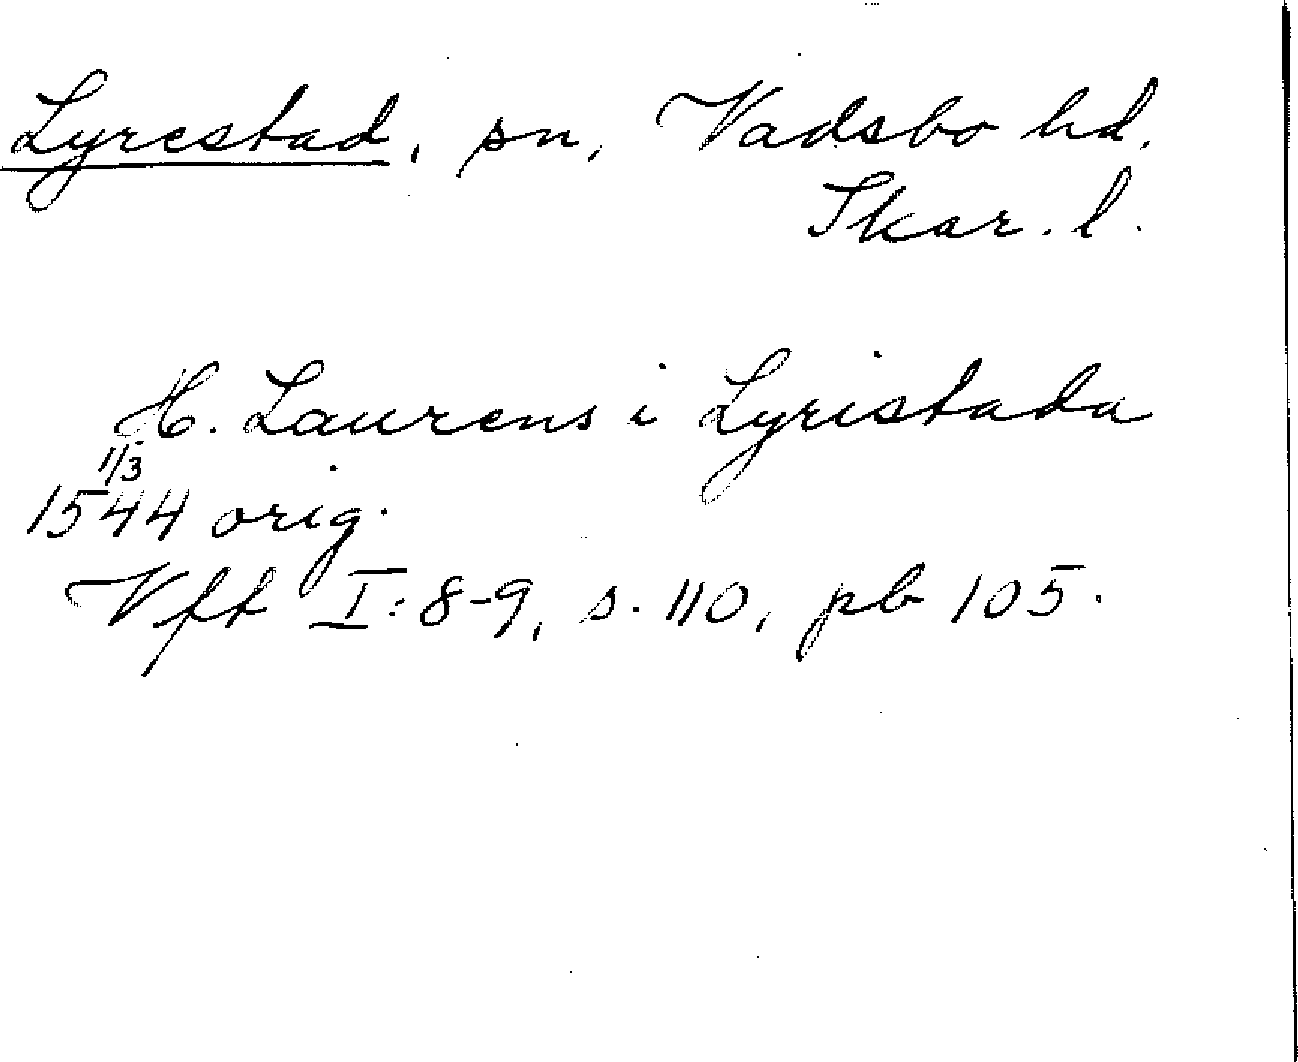 Lyrestad, sn, Vadsbo hd.
Skar. l.
H. Laurens i Lyristada
11/3
1544 orig.
Vft I: 8-9, s. 110, pb 105.